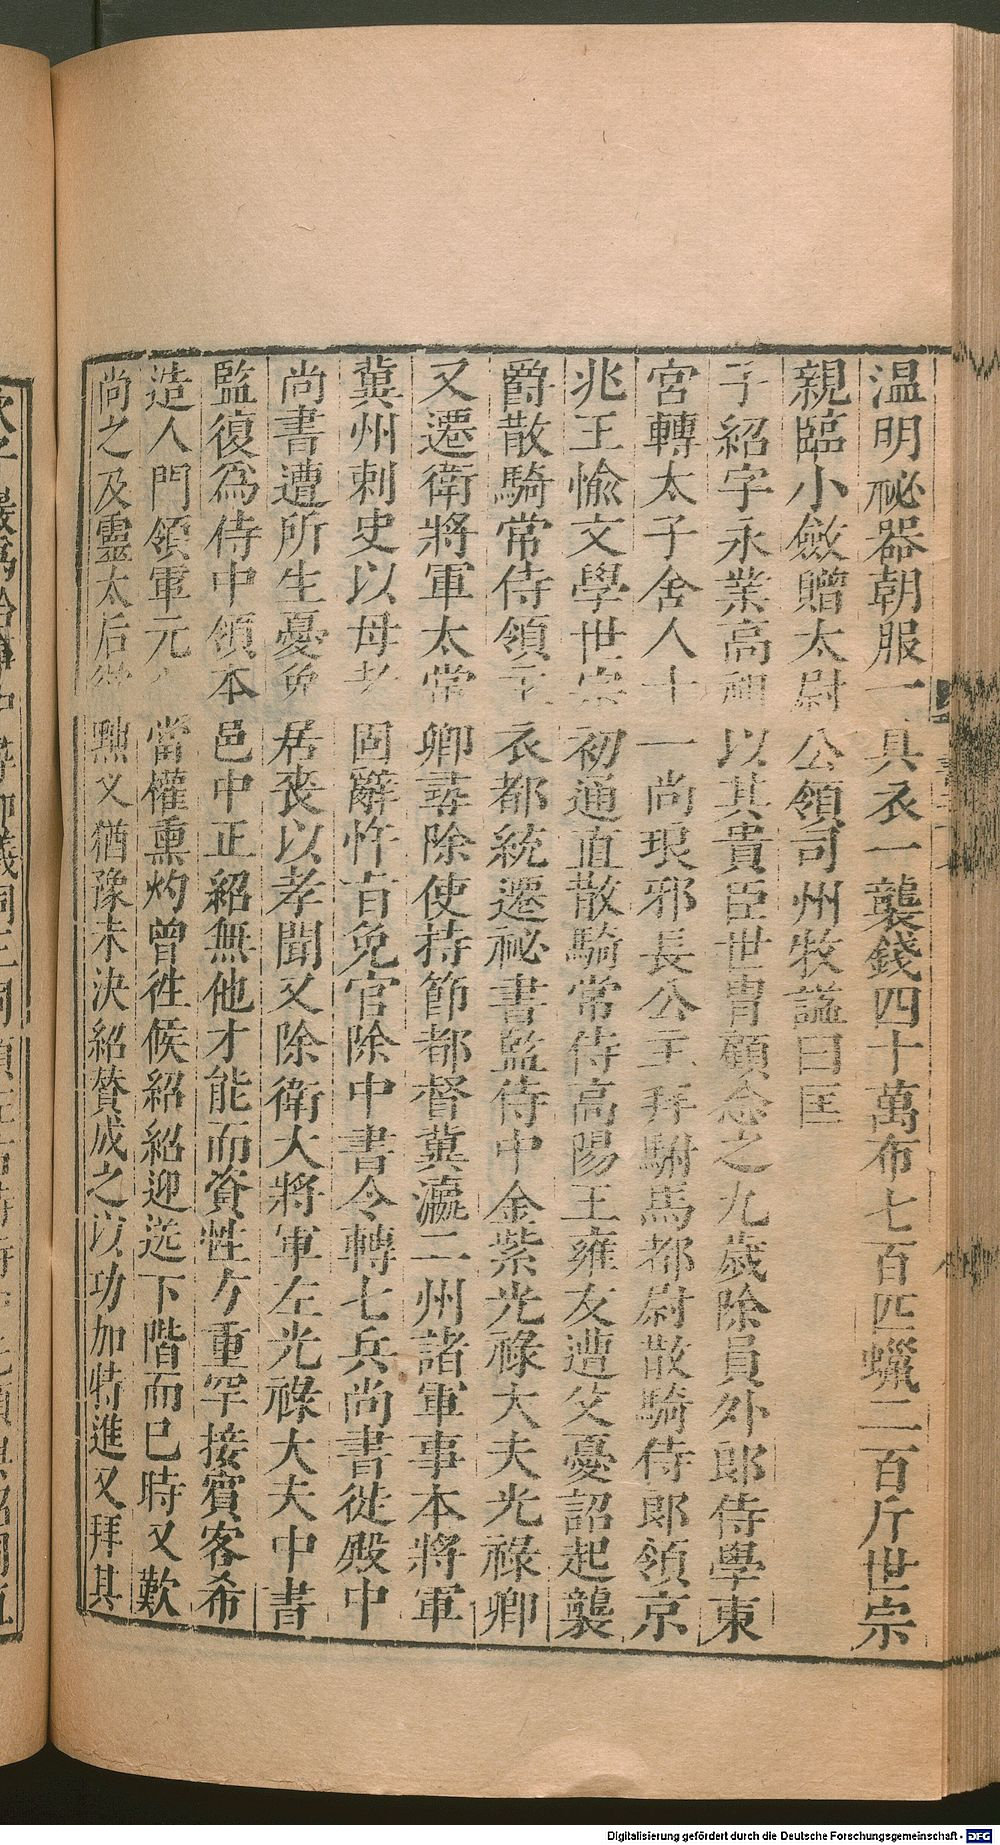 温明祕器朝服一具衣一襲錢四十萬布七百匹蠟二百斤世宗
親臨小斂贈太尉公領司州牧諡曰匡
子紹字永業高祖以其貴臣世胄顧念之九歲除員外郎侍學東
宮轉太子舍人十一尚琅邪長公主拜駙馬都尉散騎侍郎領京
兆王愉文學世宗初通直散騎常侍高陽王雍友遭父憂詔起襲
爵散騎常侍領主衣都統遷祕書監侍中金紫光祿大夫光祿卿
又遷衛將軍太常卿尋除使持節都督冀瀛二州諸軍事本將軍
冀州刺史以母老固辭忤旨免官除中書令轉七兵尚書從殿中
尚書遭所生憂免居喪以孝聞又除衛大將軍左光祿大夫中書
監復爲侍中領本邑中正紹無他才能而資性方重罕接賓客希
造人門領軍元乂當權熏灼曾往候紹紹迎送下階而已時人歎
尚之及靈太后欲黜乂猶豫未決紹贊成之以功加特進又拜其
Digitalisierung gefördert durch die Deutsche Forschungsgemeinschaft - DFG